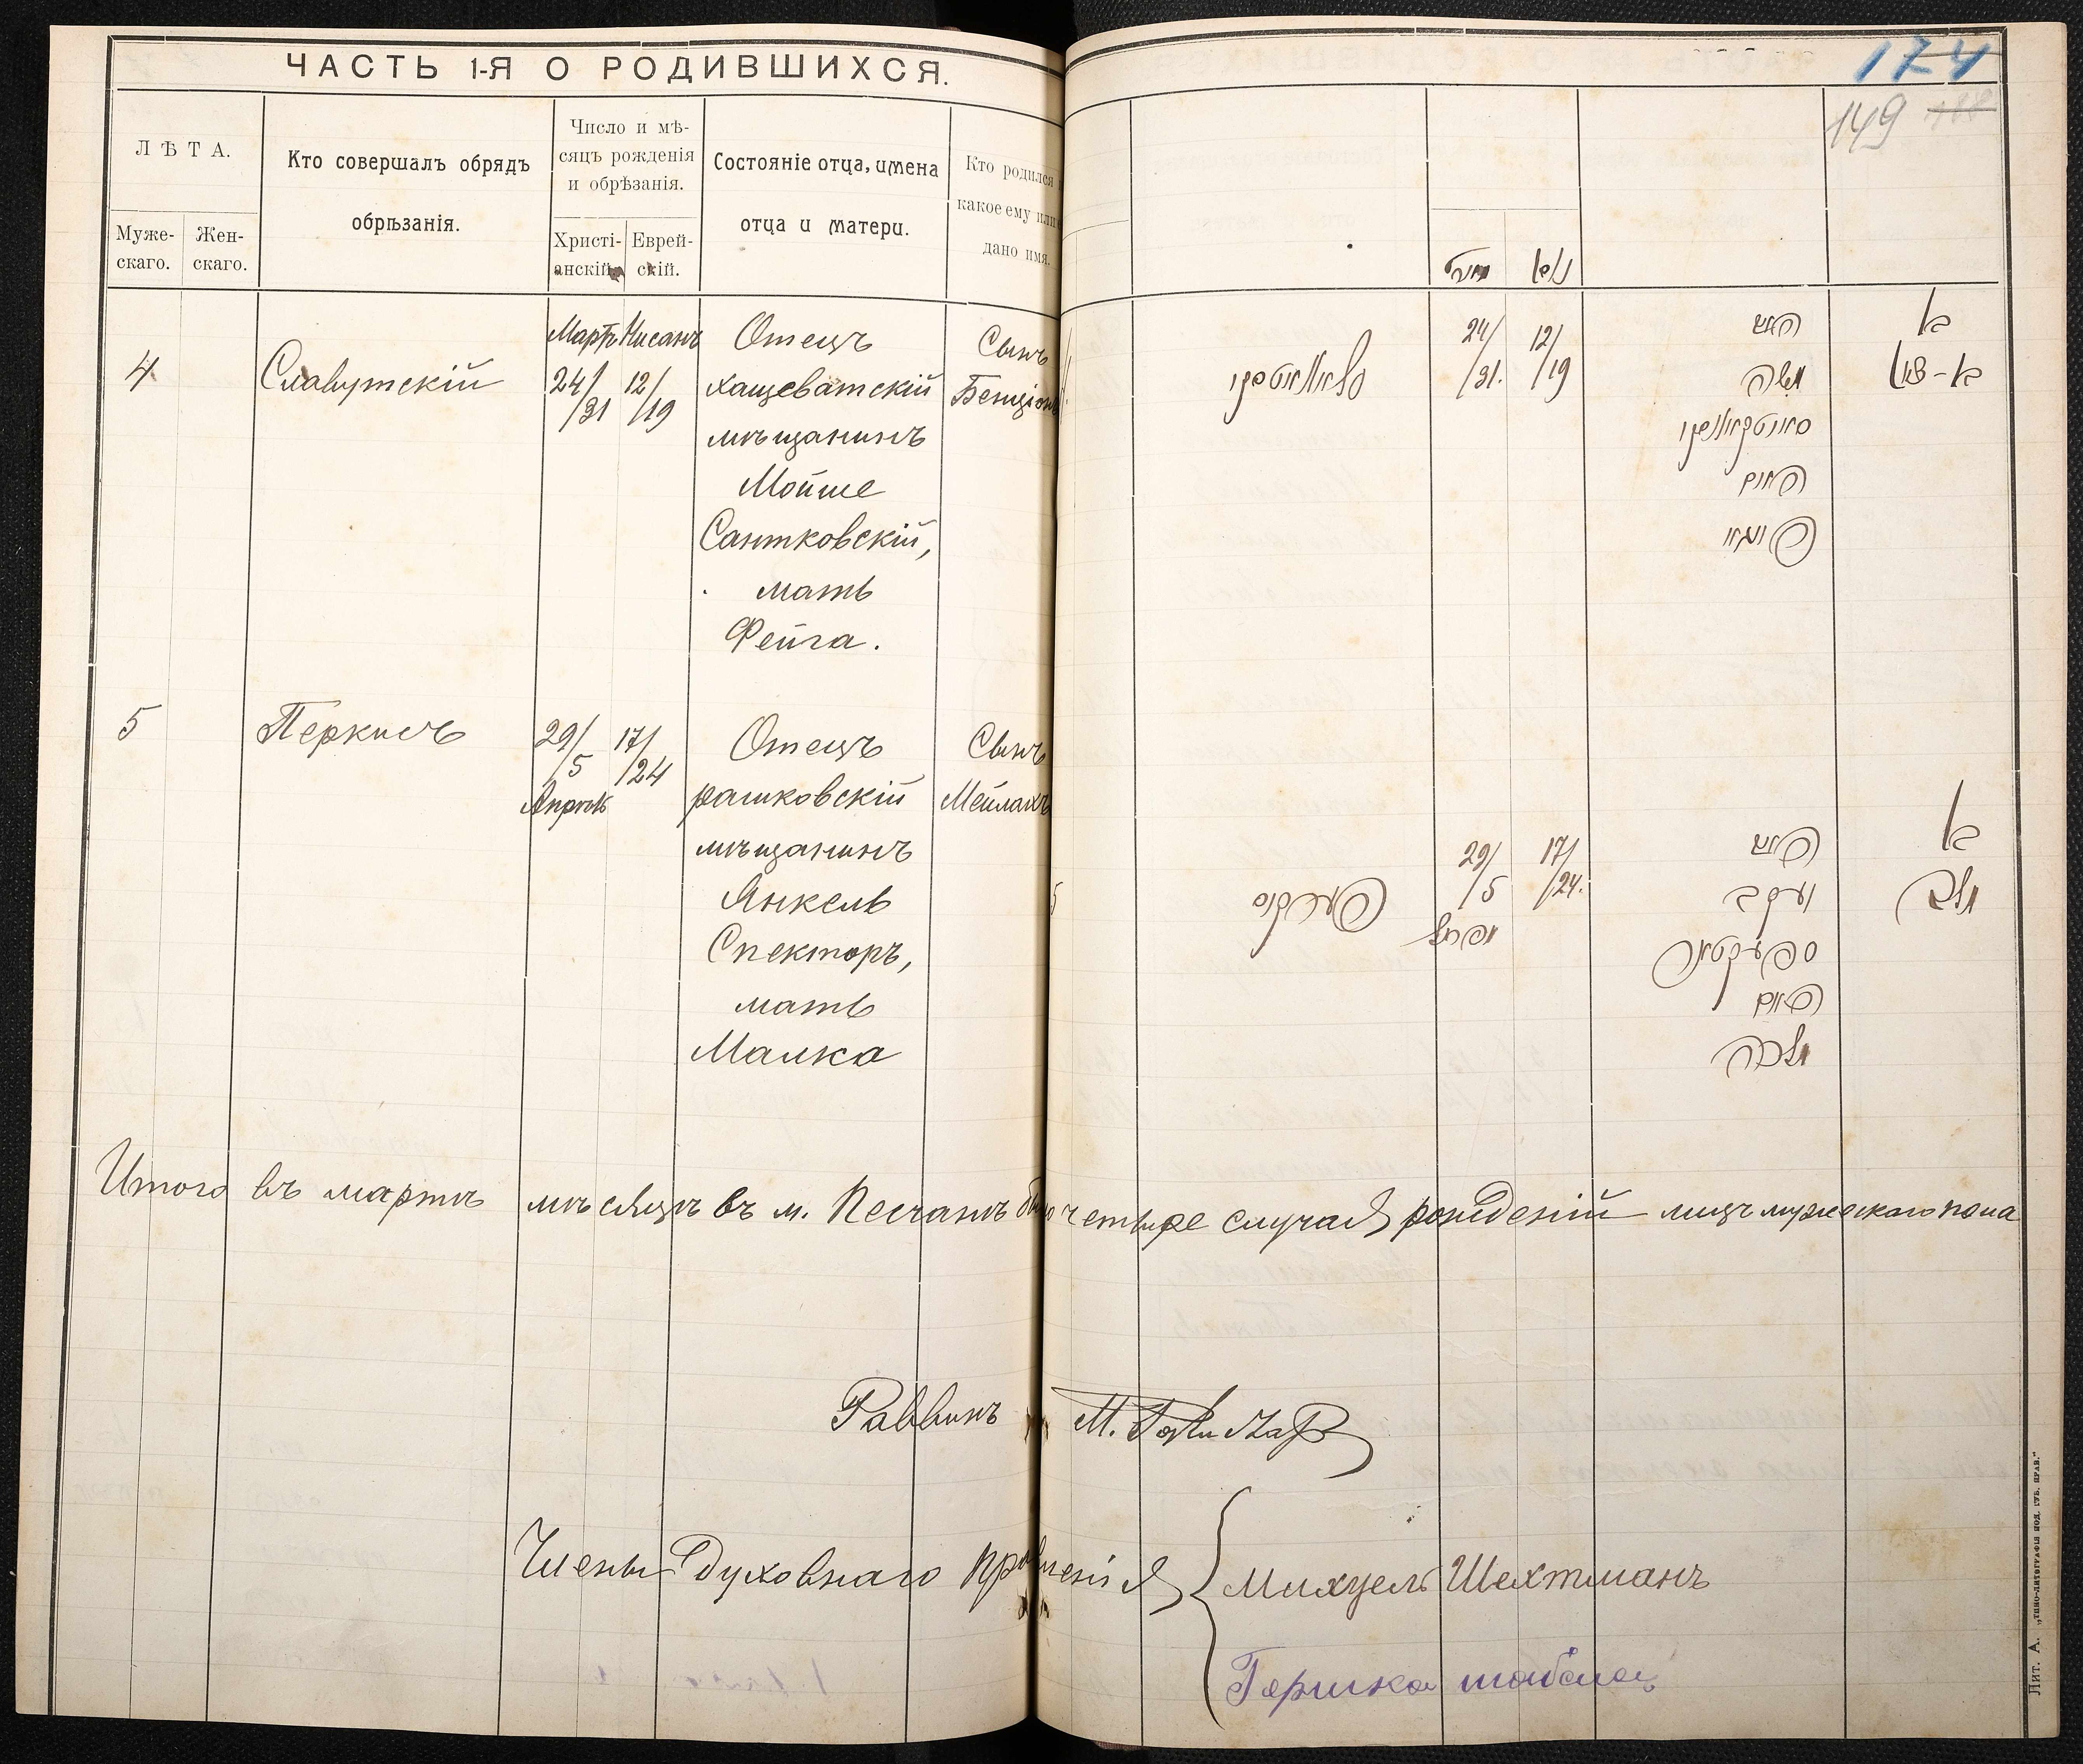 ЧАСТЬ 1-Я О РОДИВШИХСЯ.
ЛѢТА.
Муже-
скаго.
Жен-
скаго.
Кто совершалъ обрядъ
обрѣзанія.
Число и мѣ-
сяцъ рожденія
и обрѣзанія.
Христі-
анскій.
Еврей-
скій.
Состояніе отца, имена
отца и матери.
Кто родился
какое ему или
дано имя.
4
Славутскій
Мартъ
24/
/31
Нисанъ
12/
/19
Отецъ
хащеватскій
мѣщанинъ
Мойше
Сантковскій,
мать
Фейга.
Сынъ
Бенціонъ
5
Перкисъ
29/
/5
Апрѣль
17/
/24
Отецъ
рашковскій
мѣщанинъ
Янкель
Спекторъ,
мать
Малка
Сынъ
Мейлахъ
174
149
מערץ
ניסן
בן
בן-ציון
האב
משה
סאנטקאווסקי
האם
פייגא
12/
/19
24/
/31.
סלאוואוטסקי
בן
מלך
האב
יעקב
ספעקטאר
האם
מלכה
17/
/24.
29/
/5
אפריל
פערקיס
5
Итого въ мартѣ мѣсяцѣ въ м. Песчанѣ было четыре случая рожденій лицъ мужескаго пола
Раввинъ М.
Члены духовнаго правленія
Михуель Шехтманъ
Гершко
Лит. А. „ТИПО-ЛИТОГРАФІЯ ПОД. ГУБ. ПРАВ."